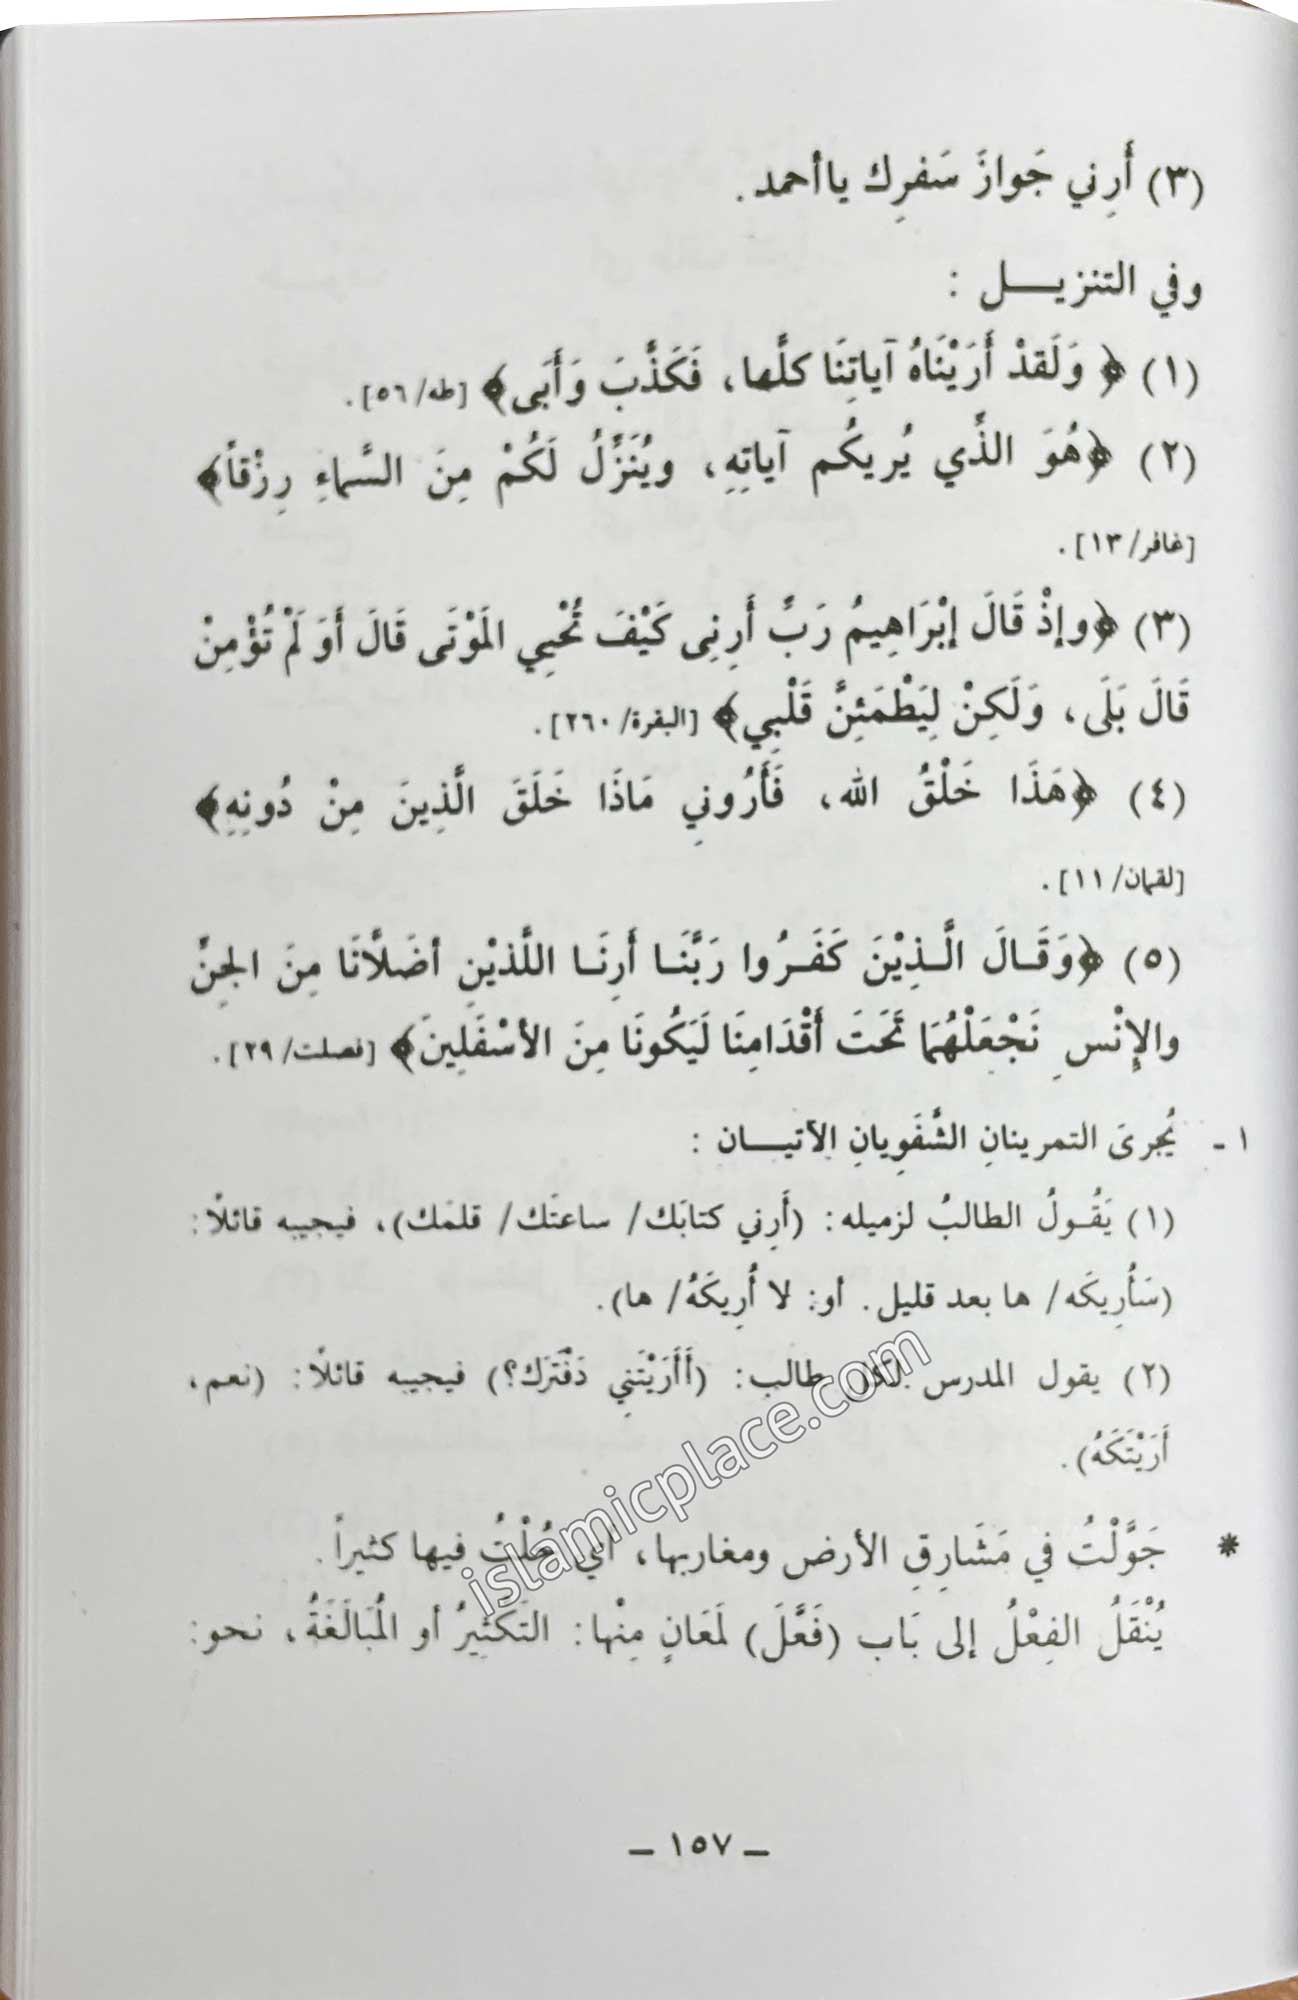 (٣) أَرِني جَوازَ سَفرِك ياأحمد.
وفي التنزيـــل :
(١) ﴿ وَلَقدْ أَرَيْنَاهُ آياتِنَا كلَّها، فَكَذَّبَ وَأَبَى﴾ [طه/ ٥٦].
(٢) ﴿هُوَ الذَّي يُريكُم آياتِهِ، ويُنَزِّلُ لَكُمْ مِنَ السَّماءِ رِزْقاً﴾
[غافر/ ١٣].
(٣) ﴿وإذْ قَالَ إبْرَاهِيمُ رَبِّ أَرِنِى كَيْفَ تُحْيِي المَوْتَى قَالَ أَوَ لَمْ تُؤْمِنْ
قَالَ بَلَى، وَلَكِنْ لِيَطْمَئِنَّ قَلْبِي﴾ [البقرة/ ٢٦٠].
(٤) ﴿هَذَا خَلْقُ الله، فَأَرُوني مَاذَا خَلَقَ الَّذِينَ مِنْ دُونِهِ﴾
[لقمان/ ١١].
(٥) ﴿وَقَـالَ الَّـذِيْنَ كَفَـرُوا رَبَّنَـا أَرِنَـا اللَّذيْنِ أضَلَّانَا مِنَ الجِنِّ
والإنْسِ نَجْعَلْهُمَا تَحَتَ أَقْدَامِنَا لَيَكُونَا مِنَ الأسْفَلِينَ﴾ [فصلت/ ٢٩].
١ - يُجرىَ التمرينانِ الشَّفَوِيانِ الآتيـــان :
(١) يَقُـولُ الطالبُ لزميله: (أَرِني كتابَك/ ساعتَك/ قلمَك)، فيجيبه قائلًا:
(سَأُرِيكَه/ ها بعد قليل. أو: لا أُرِيكَهُ/ ها).
(٢) يقول المدرس لكل طالب: (أَأَرَيْتَنِي دَفْتَرَك؟) فيجيبه قائلًا: (نعم،
أَرَيْتَكَهُ).
* جَوَّلْتُ في مَشَارِقِ الأرض ومغاربها، أي جُلْتُ فيها كثيراً.
يُنْقَلُ الفِعْلُ إلى بَاب (فَعَّلَ) لَمَعَانٍ مِنْها: التَكثِيرُ أو المُبَالَغَةُ، نحو:
– ١٥٧ –
islamicplace.com